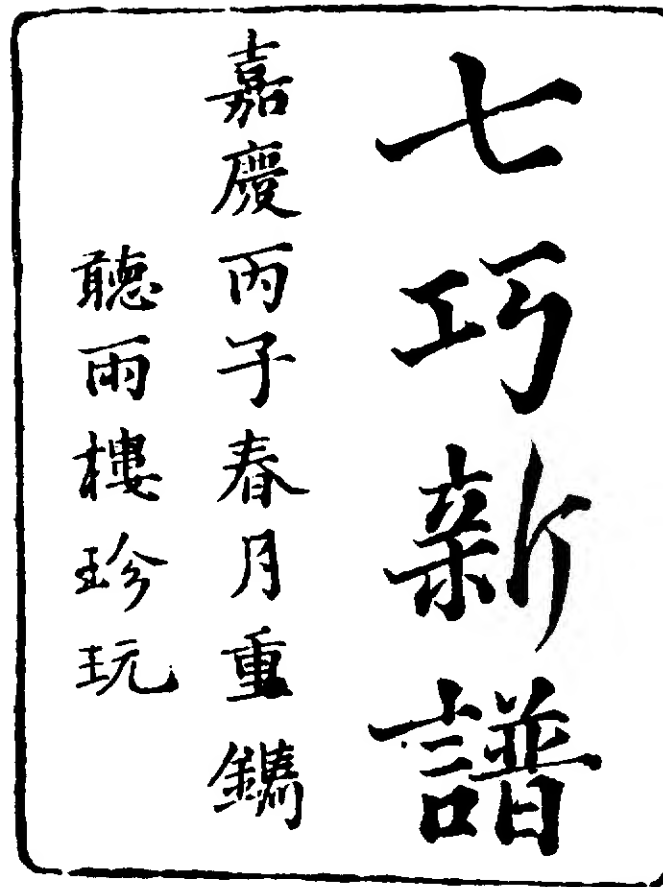 七巧新譜
嘉慶丙子春月重鐫
聽雨樓珍玩